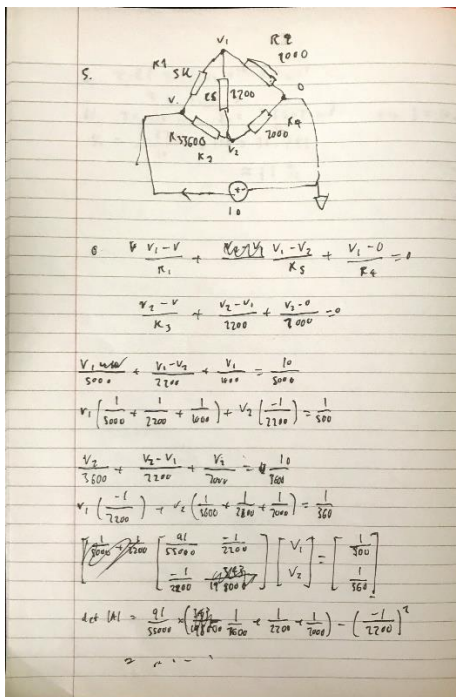 5.
V₁
R2
2000
R1
5k
R5
2200
0
V
R3 3600
R4
2000
V₂
10
(V₁-V)/R₁ + (V₁-V₂)/R₅ + (V₁-0)/R₄ = 0
(V₂-V)/R₃ + (V₂-V₁)/2200 + (V₂-0)/2000 = 0
V₁/5000 + (V₁-V₂)/2200 + V₁/1000 = 10/5000
V₁(1/5000 + 1/2200 + 1/1000) + V₂(-1/2200) = 1/500
V₂/3600 + (V₂-V₁)/2200 + V₂/2000 = 10/3600
V₁(-1/2200) + V₂(1/3600 + 1/2200 + 1/2000) = 1/360
[91/55000 -1/2200] [V₁] = [1/500]
[-1/2200] [V₂] [1/360]
det |A| = 91/55000 × (1/3600 + 1/2200 + 1/2000) - (-1/2200)²